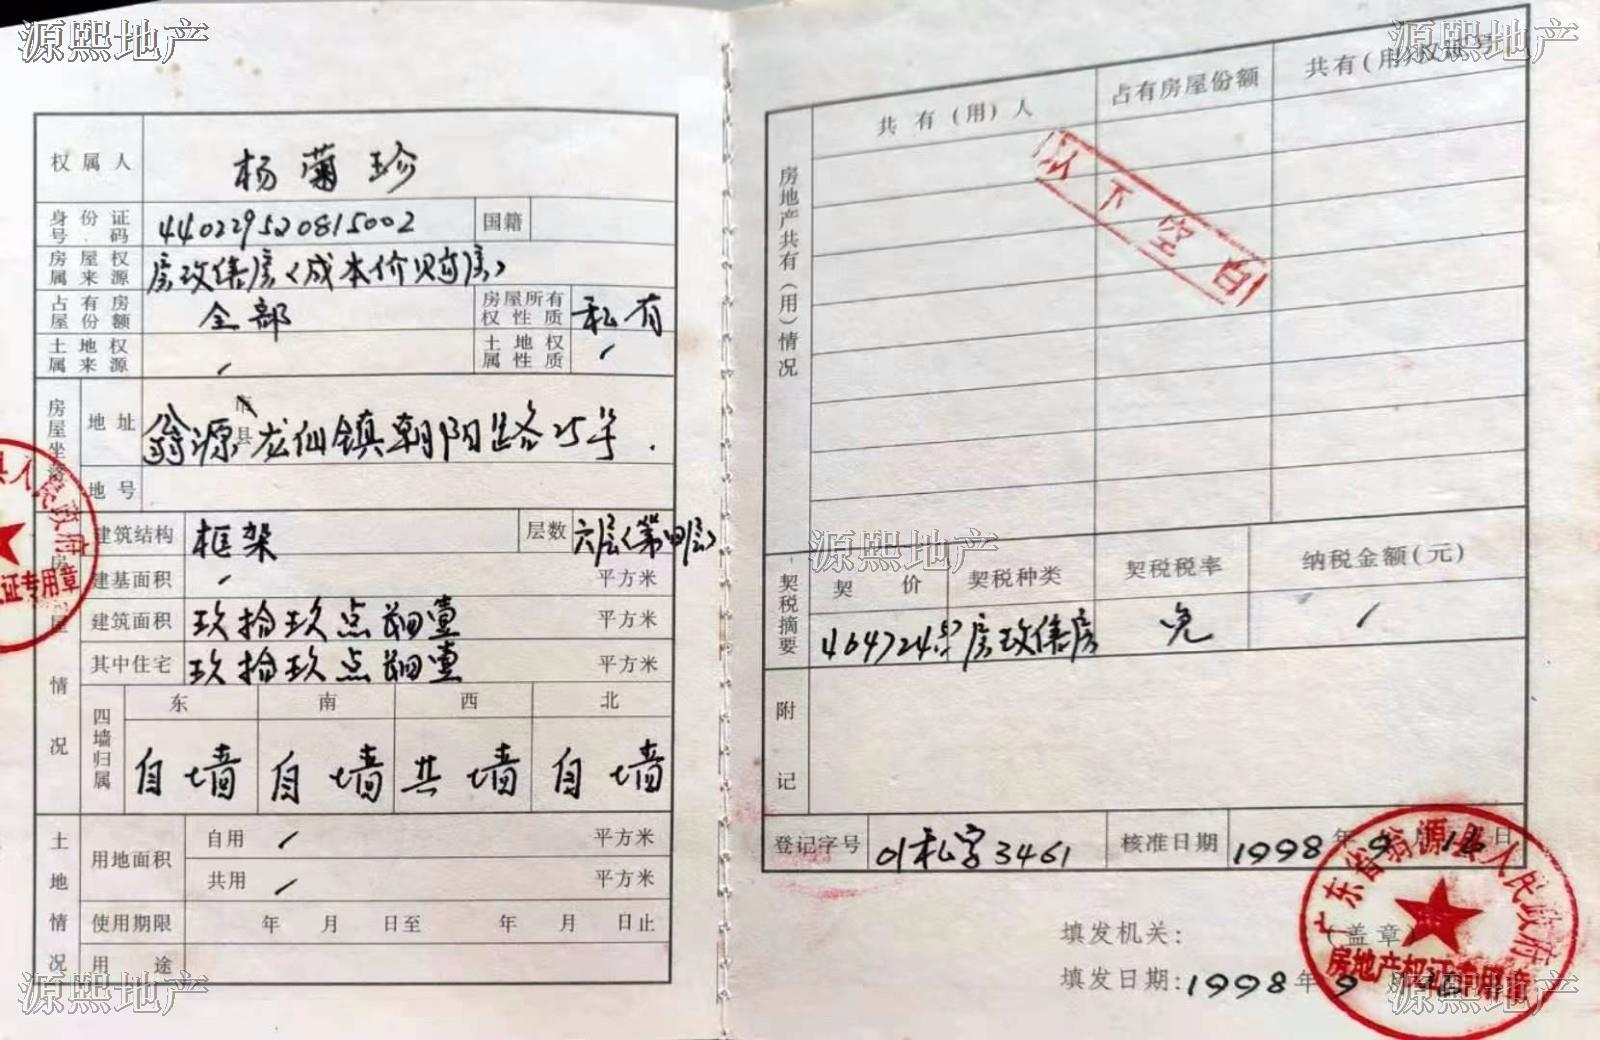 源熙地产
源熙地产
权属人 杨菊珍
身份证号码 440229520815002 国籍
房屋权属来源 房改售房(成本价购房)
占有房屋份额 全部 房屋所有权性质 私有
土地权属来源 / 土地权属性质 /
房屋坐落 地址 翁源 市县 龙仙镇朝阳路25号.
地号
房屋情况 建筑结构 框架 层数 六层(第四层)
建基面积 / 平方米
建筑面积 玖拾玖点肆壹 平方米
其中住宅 玖拾玖点肆壹 平方米
四墙归属 东 南 西 北
自墙 自墙 共墙 自墙
土地情况 用地面积 自用 / 平方米
共用 / 平方米
使用期限 年 月 日至 年 月 日止
用途
源熙地产
房地产共有(用)情况 共有(用)人 占有房屋份额 共有(用)
以下空白
源熙地产
契税摘要 契价 契税种类 契税税率 纳税金额(元)
房改售房 免 /
附记
登记字号 01私字3461 核准日期 1998年9月16日
填发机关: (盖章)
填发日期: 1998年9
广东省翁源县人民政府
房地产权证专用章
县人民政府
证专用章
源熙地产